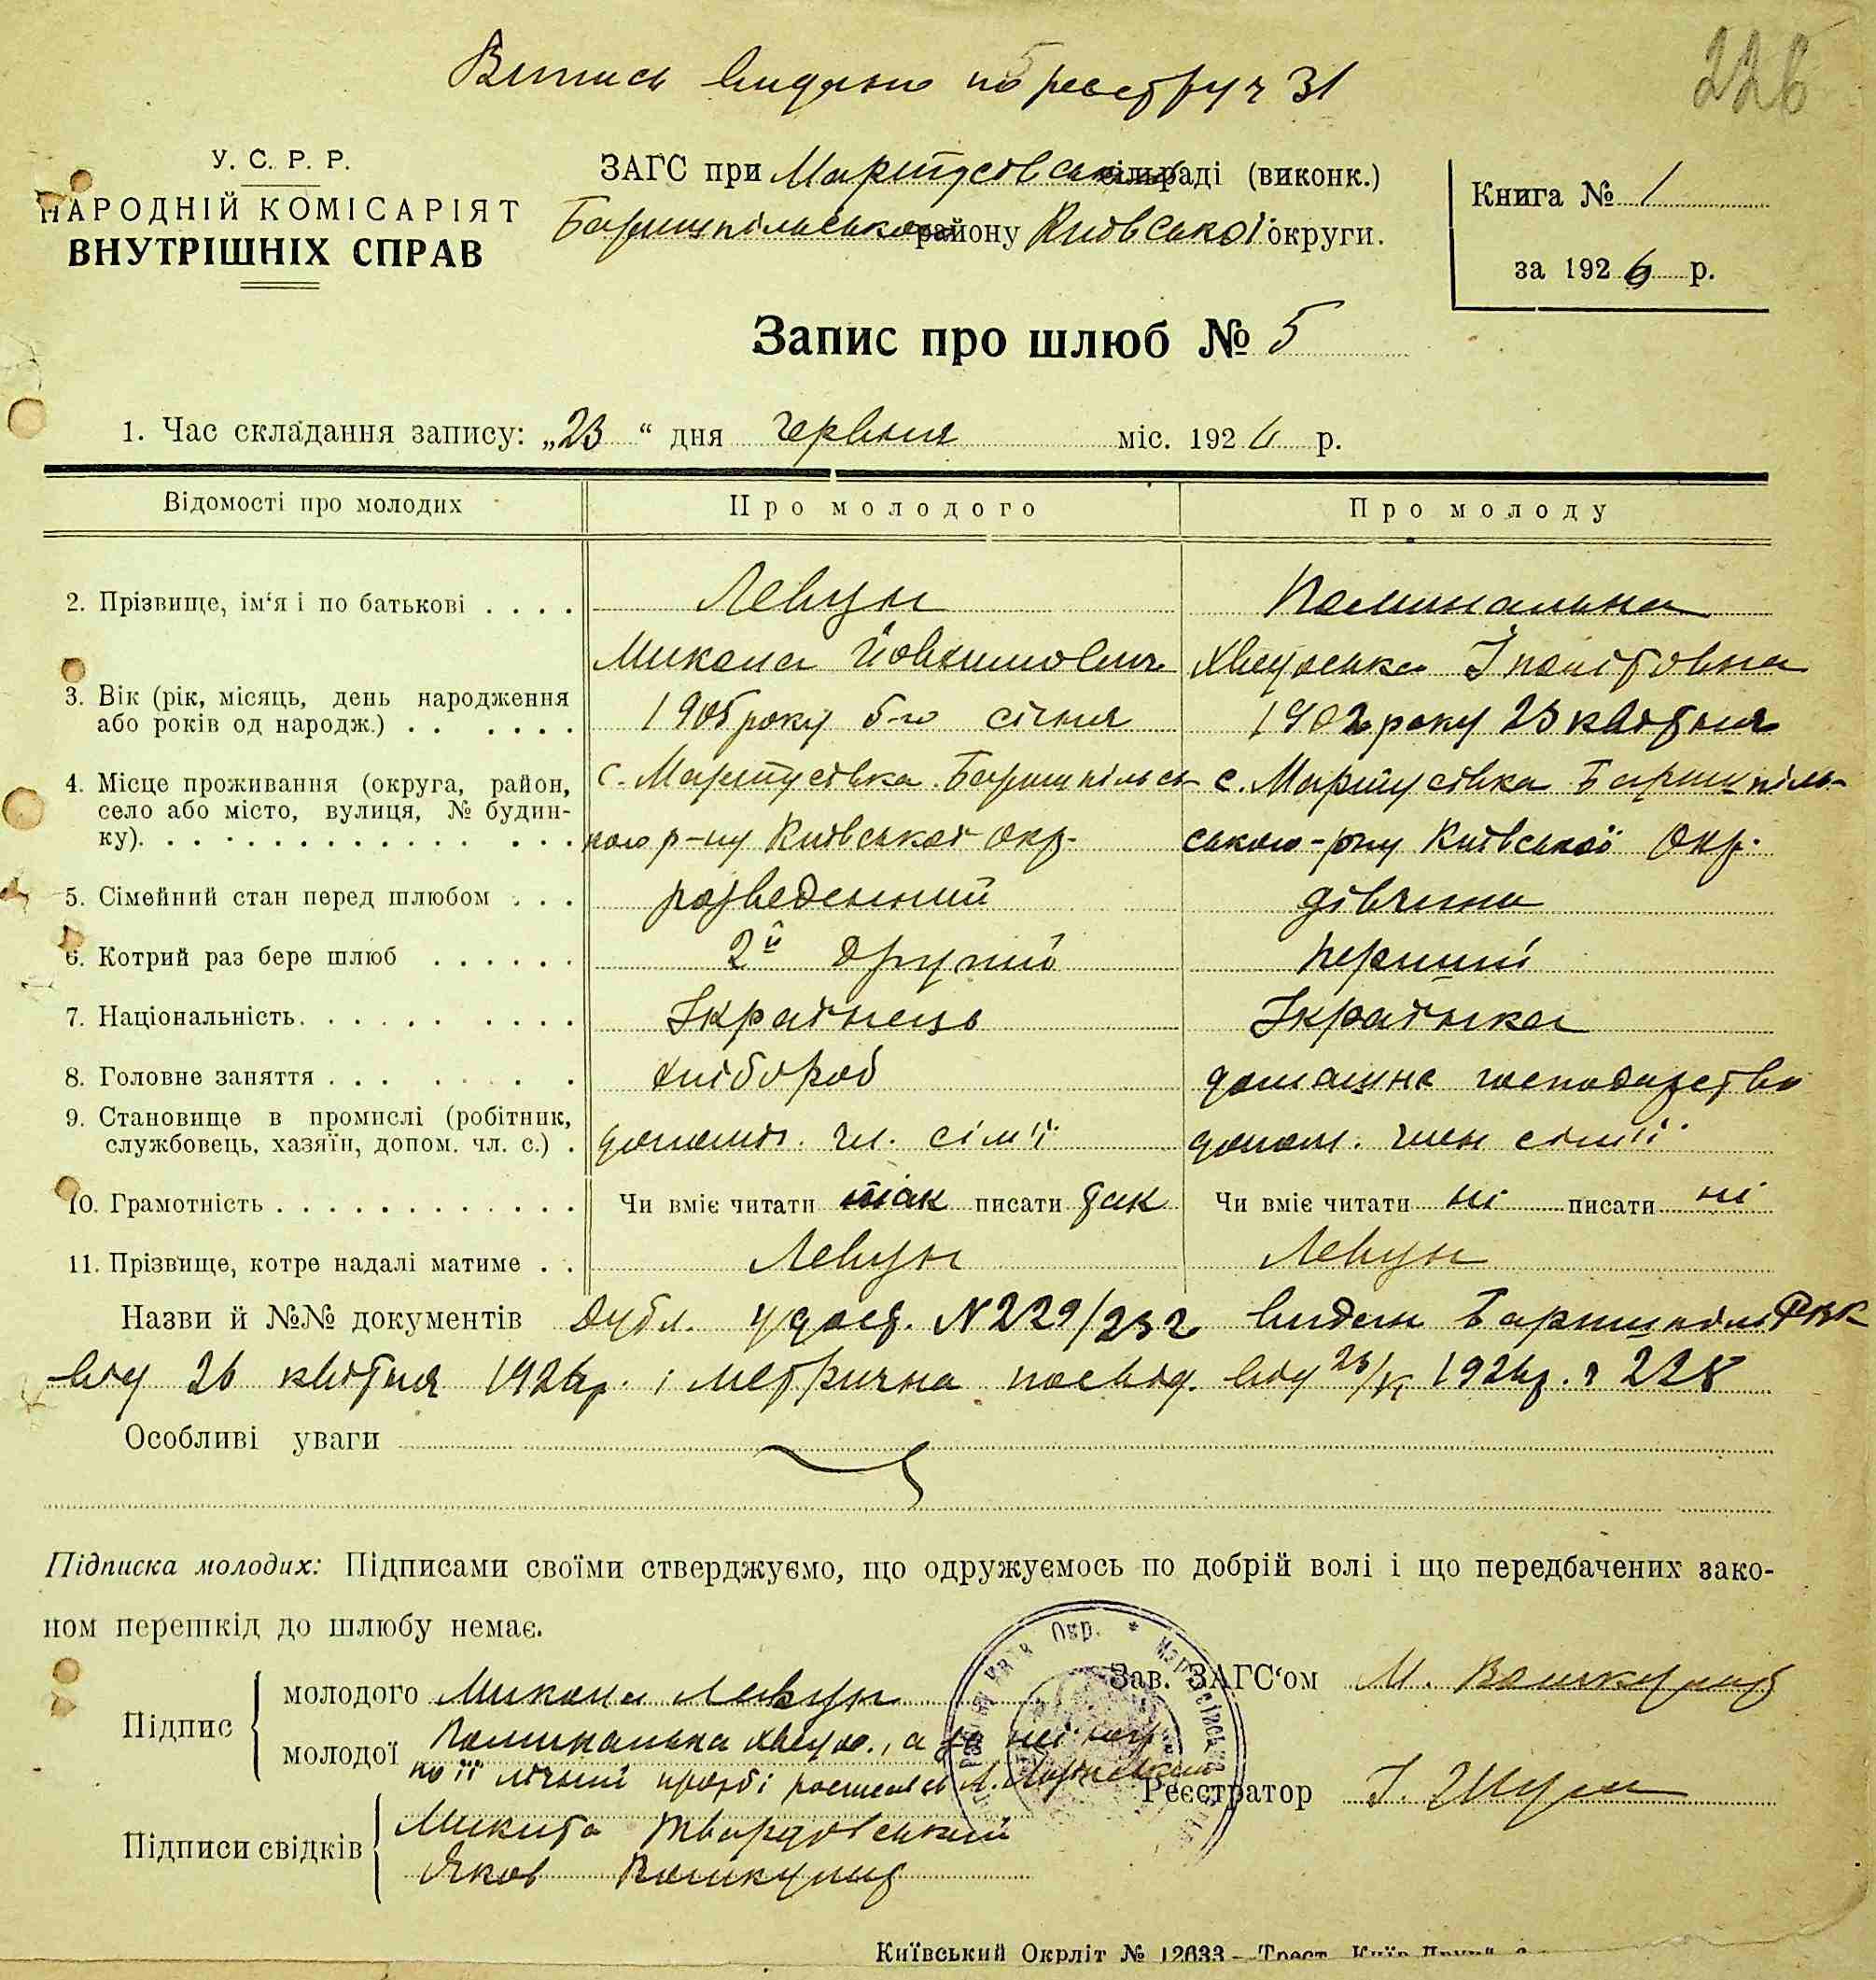 Витись видано по реєстру ч 31
226
У. С. Р. Р.
НАРОДНІЙ КОМІСАРІЯТ
ВНУТРІШНІХ СПРАВ
ЗАГС при Мартусівській сільраді (виконк.)
Баришпільського району Київської округи.
Книга № 1
за 1926 р.
Запис про шлюб № 5
1. Час складання запису: „23“ дня червня міс. 1926 р.
Відомості про молодих
Про молодого
Про молоду
2. Прізвище, ім‘я і по батькові . . . .
Левун
Поминальна
Микола Йовхимович
Хведоська Іполітовна
3. Вік (рік, місяць, день народження
або років од народж.) . . . . . .
1905 року 5-го січня
1902 року 23 квітня
4. Місце проживання (округа, район,
село або місто, вулиця, № будин-
ку). . . . . . . . . . . . . . . .
с. Мартусівка Баришпільсь-
кого р-ну Київської Окр.
с. Мартусівка Баришпіль-
ського р-ну Київської Окр.
5. Сімейний стан перед шлюбом . . .
розведенний
дівчина
6. Котрий раз бере шлюб . . . . . .
2й другий
перший
7. Національність. . . . . . . . . .
Українець
Українка
8. Головне заняття . . . . . . . .
хлібороб
домашнє господарство
9. Становище в промислі (робітник,
службовець, хазяїн, допом. чл. с.) .
допоміж. чл. сім'ї
допом. член сім'ї
10. Грамотність . . . . . . . . . . . . .
Чи вміє читати так писати так
Чи вміє читати ні писати ні
11. Прізвище, котре надалі матиме . .
Левун
Левун
Назви й №№ документів Дубл. удост. N 229/232 видан Баришпіль РВК
від 26 квітня 1926 р. і метрична посвід. від 23/VI 1926 р. ч 228
Особливі уваги
Підписка молодих: Підписами своїми стверджуємо, що одружуємось по добрій волі і що передбачених зако-
ном перешкід до шлюбу немає.
Підпис
молодого Микола Левун
молодої Поминальна Хведос., а за неї
по її лічній прозбі росписався
Зав. ЗАГС‘ом М.
Реєстратор
Підписи свідків
Микита Твардовський
Яков
Київський Окрліт № 12633 — Трест „Київ-Друк“